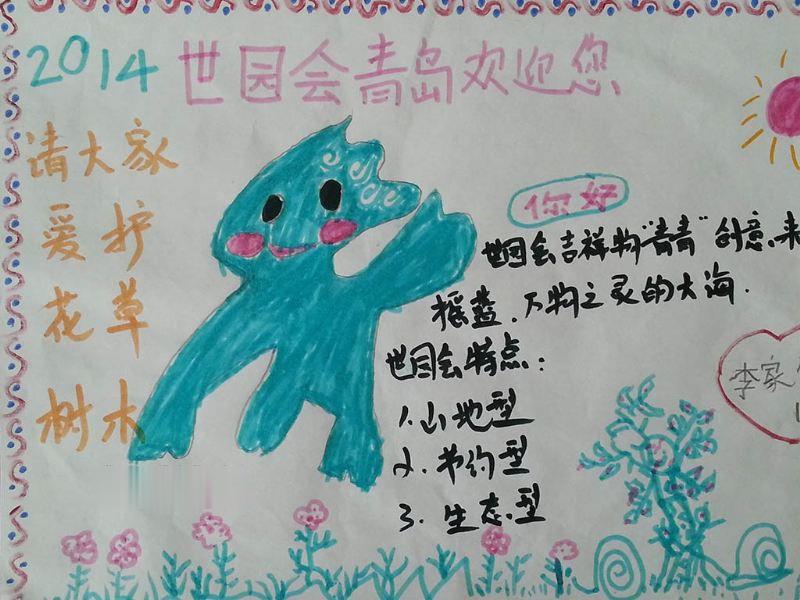 2014 世园会青岛欢迎您
请大家
爱护
花草
树木
你好
世园会吉祥物"青青"创意,来
摇蓝.万物之灵的大海.
世园会特点:
1.山地型
2.节约型
3.生态型
李家